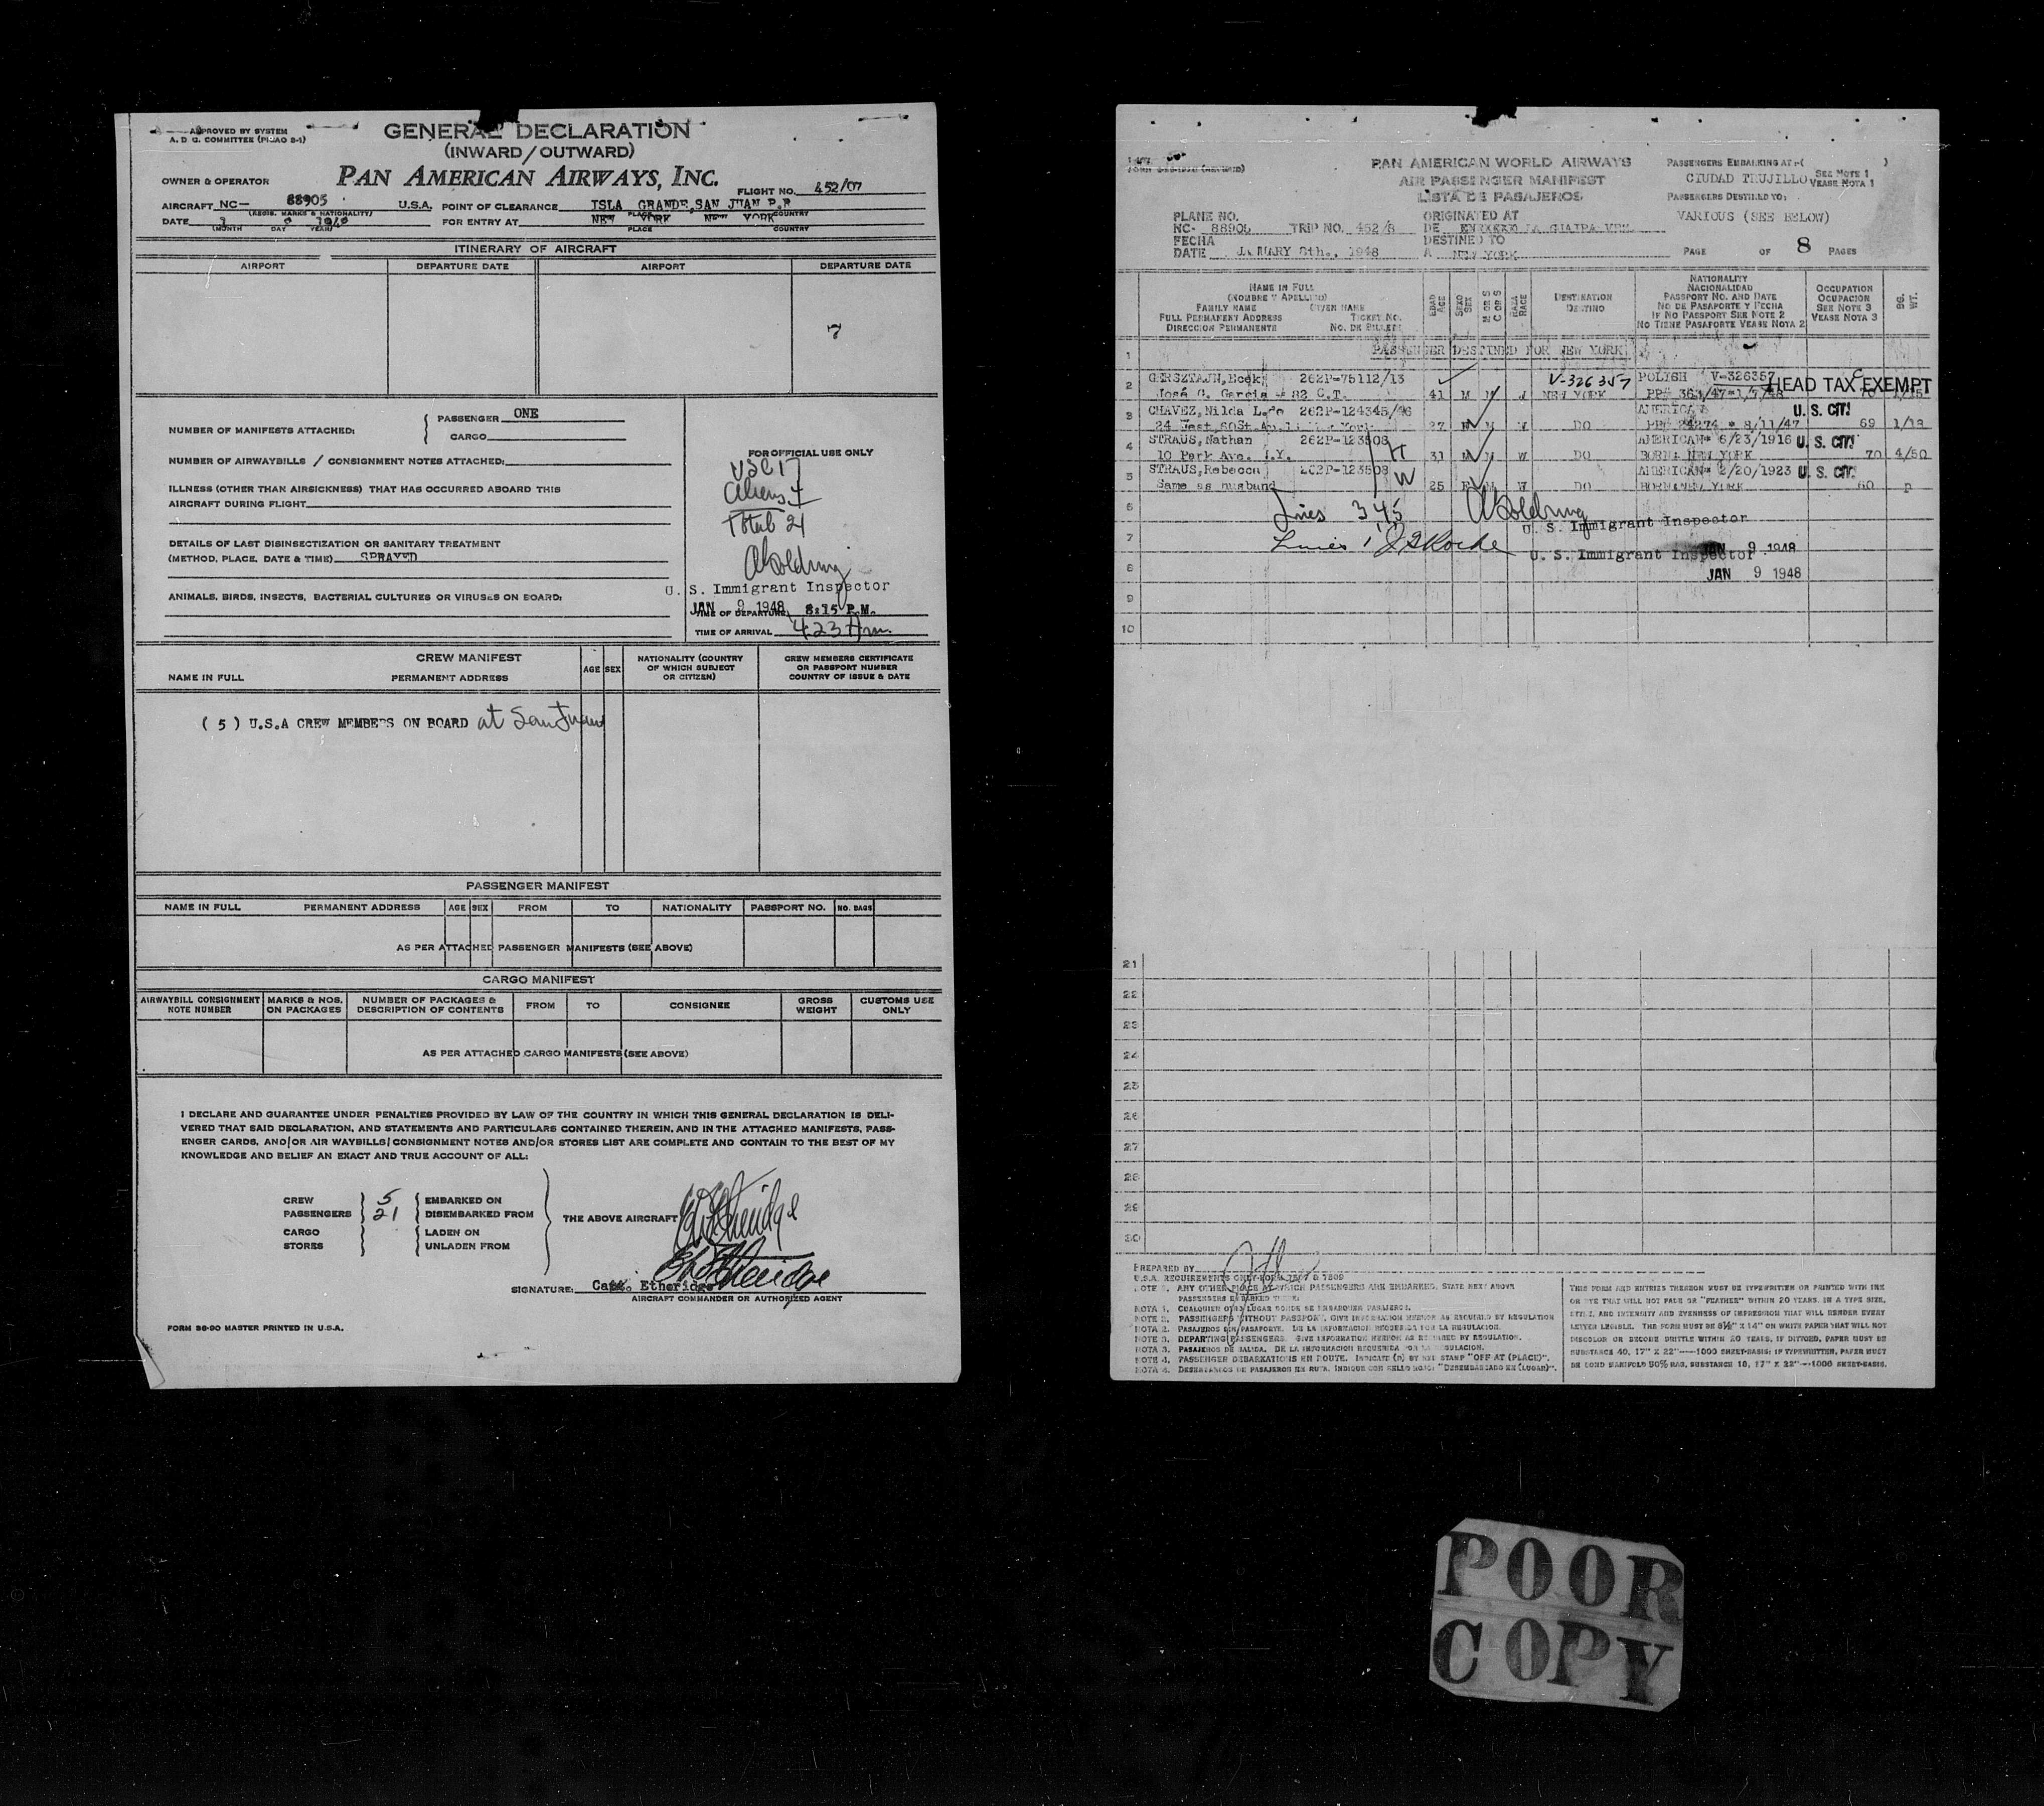 APPROVED BY SYSTEM
A. D. G. COMMITTEE (PIJAO 8-1)
GENERAL DECLARATION
(INWARD/OUTWARD)
PAN AMERICAN AIRWAYS, INC.
OWNER & OPERATOR
FLIGHT NO. 452/07
AIRCRAFT NC- 88905 U.S.A. POINT OF CLEARANCE ISLA GRANDE, SAN JUAN P.R
(REGIS. MARKS & NATIONALITY) PLACE COUNTRY
DATE FOR ENTRY AT NEW YORK NEW YORK
(MONTH DAY YEAR) PLACE COUNTRY
ITINERARY OF AIRCRAFT
AIRPORT DEPARTURE DATE AIRPORT DEPARTURE DATE
7
NUMBER OF MANIFESTS ATTACHED: PASSENGER ONE
CARGO
NUMBER OF AIRWAYBILLS / CONSIGNMENT NOTES ATTACHED:
ILLNESS (OTHER THAN AIRSICKNESS) THAT HAS OCCURRED ABOARD THIS
AIRCRAFT DURING FLIGHT
DETAILS OF LAST DISINSECTIZATION OR SANITARY TREATMENT
(METHOD, PLACE, DATE & TIME) SPRAYED
ANIMALS, BIRDS, INSECTS, BACTERIAL CULTURES OR VIRUSES ON BOARD:
FOR OFFICIAL USE ONLY
USC 17
Aliens 4
Total 21
U. S. Immigrant Inspector
JAN 9 1948
TIME OF DEPARTURE 8:15 P.M.
TIME OF ARRIVAL 4:23 Am.
CREW MANIFEST
NAME IN FULL PERMANENT ADDRESS AGE SEX NATIONALITY (COUNTRY OF WHICH SUBJECT OR CITIZEN) CREW MEMBERS CERTIFICATE OR PASSPORT NUMBER COUNTRY OF ISSUE & DATE
( 5 ) U.S.A CREW MEMBERS ON BOARD at San Juan
PASSENGER MANIFEST
NAME IN FULL PERMANENT ADDRESS AGE SEX FROM TO NATIONALITY PASSPORT NO. NO. BAGS
AS PER ATTACHED PASSENGER MANIFESTS (SEE ABOVE)
CARGO MANIFEST
AIRWAYBILL CONSIGNMENT NOTE NUMBER MARKS & NOS. ON PACKAGES NUMBER OF PACKAGES & DESCRIPTION OF CONTENTS FROM TO CONSIGNEE GROSS WEIGHT CUSTOMS USE ONLY
AS PER ATTACHED CARGO MANIFESTS (SEE ABOVE)
I DECLARE AND GUARANTEE UNDER PENALTIES PROVIDED BY LAW OF THE COUNTRY IN WHICH THIS GENERAL DECLARATION IS DELI-
VERED THAT SAID DECLARATION, AND STATEMENTS AND PARTICULARS CONTAINED THEREIN, AND IN THE ATTACHED MANIFESTS, PASS-
ENGER CARDS, AND/OR AIR WAYBILLS/CONSIGNMENT NOTES AND/OR STORES LIST ARE COMPLETE AND CONTAIN TO THE BEST OF MY
KNOWLEDGE AND BELIEF AN EXACT AND TRUE ACCOUNT OF ALL:
CREW 5 EMBARKED ON
PASSENGERS 21 DISEMBARKED FROM
CARGO LADEN ON
STORES UNLADEN FROM
THE ABOVE AIRCRAFT
SIGNATURE: Capt. Etheridge
AIRCRAFT COMMANDER OR AUTHORIZED AGENT
FORM 38-90 MASTER PRINTED IN U.S.A.
PAN AMERICAN WORLD AIRWAYS
AIR PASSENGER MANIFEST
LISTA DE PASAJEROS
PASSENGERS EMBARKING AT ( )
CIUDAD TRUJILLO SEE NOTE 1 VEASE NOTA 1
PASSENGERS DESTINED TO:
VARIOUS (SEE BELOW)
PLANE NO. ORIGINATED AT
NC- 88905 TRIP NO. 452/8 DE LA GUAIRA VEN.
FECHA DESTINED TO
DATE JANUARY 8th., 1948 A NEW YORK PAGE OF 8 PAGES
NAME IN FULL
(NOMBRE Y APELLIDO)
FAMILY NAME GIVEN NAME
FULL PERMANENT ADDRESS TICKET NO.
DIRECCION PERMANENTE NO. DE BILLETE
EDAD AGE
SEXO SEX
M OR S C OR S
RAZA RACE
DESTINATION DESTINO
NATIONALITY
NACIONALIDAD
PASSPORT NO. AND DATE
NO DE PASAPORTE Y FECHA
IF NO PASSPORT SEE NOTE 2
NO TIENE PASAPORTE VEASE NOTA 2
OCCUPATION
OCUPACION
SEE NOTE 3
VEASE NOTA 3
BG. WT.
1 PASSENGER DESTINED FOR NEW YORK
2 GERSZTAJN, Ecek 262P-75112/13 V-326357 POLISH V-326357 HEAD TAX EXEMPT
José G. Garcia # 82 C.T. 41 M M NEW YORK 70 1/15
3 CHAVEZ, Nilda L. 262P-124345/46 AMERICAN U. S. CIT.
27 F DO PP# 24274 * 8/11/47 69 1/18
4 STRAUS, Nathan 262P-123508 H AMERICAN* 6/23/1916 U. S. CIT.
10 Park Ave. N.Y. 31 M M W DO BORN: NEW YORK 70 4/50
5 STRAUS, Rebecca 262P-123508 W AMERICAN* 2/20/1923 U. S. CIT.
Same as husband 25 F M W DO BORN: NEW YORK 60 P
6 Lines 3 4 5
U. S. Immigrant Inspector
7 Lines 1
JAN 9 1948
U. S. Immigrant Inspector
8 JAN 9 1948
9
10
21
22
23
24
25
26
27
28
29
30
PREPARED BY
U.S.A. REQUIREMENTS ONLY-FORM 7507 & 7509
NOTE 1. ANY OTHER PLACE AT WHICH PASSENGERS ARE EMBARKED. STATE NEXT ABOVE
PASSENGERS EMBARKED THERE.
NOTA 1. CUALQUIER OTRO LUGAR DONDE SE EMBARQUEN PASAJEROS.
NOTE 2. PASSENGERS WITHOUT PASSPORT. GIVE INFORMATION HEREON AS REQUIRED BY REGULATION
NOTA 2. PASAJEROS SIN PASAPORTE. DE LA INFORMACION REQUERIDA POR LA REGULACION.
NOTE 3. DEPARTING PASSENGERS. GIVE INFORMATION HEREON AS REQUIRED BY REGULATION.
NOTA 3. PASAJEROS DE SALIDA. DE LA INFORMACION REQUERIDA POR LA REGULACION.
NOTE 4. PASSENGER DEBARKATIONS EN ROUTE. INDICATE (R) BY RED STAMP "OFF AT (PLACE)".
NOTA 4. DESEMBARCOS DE PASAJEROS EN RUTA. INDIQUE CON SELLO ROJO: "DESEMBARCADO EN (LUGAR)".
THIS FORM AND ENTRIES THEREON MUST BE TYPEWRITTEN OR PRINTED WITH INK
OR DYE THAT WILL NOT FADE OR "FEATHER" WITHIN 20 YEARS, IN A TYPE SIZE,
STYLE, AND INTENSITY AND EVENNESS OF IMPRESSION THAT WILL RENDER EVERY
LETTER LEGIBLE. THE FORM MUST BE 8½" X 14" ON WHITE PAPER THAT WILL NOT
DISCOLOR OR BECOME BRITTLE WITHIN 20 YEARS. IF DITTOED, PAPER MUST BE
SUBSTANCE 40, 17" X 22"-1000 SHEET-BASIS; IF TYPEWRITTEN, PAPER MUST
BE BOND MANIFOLD 50% RAG, SUBSTANCE 18, 17" X 22"-1000 SHEET-BASIS.
POOR
COPY